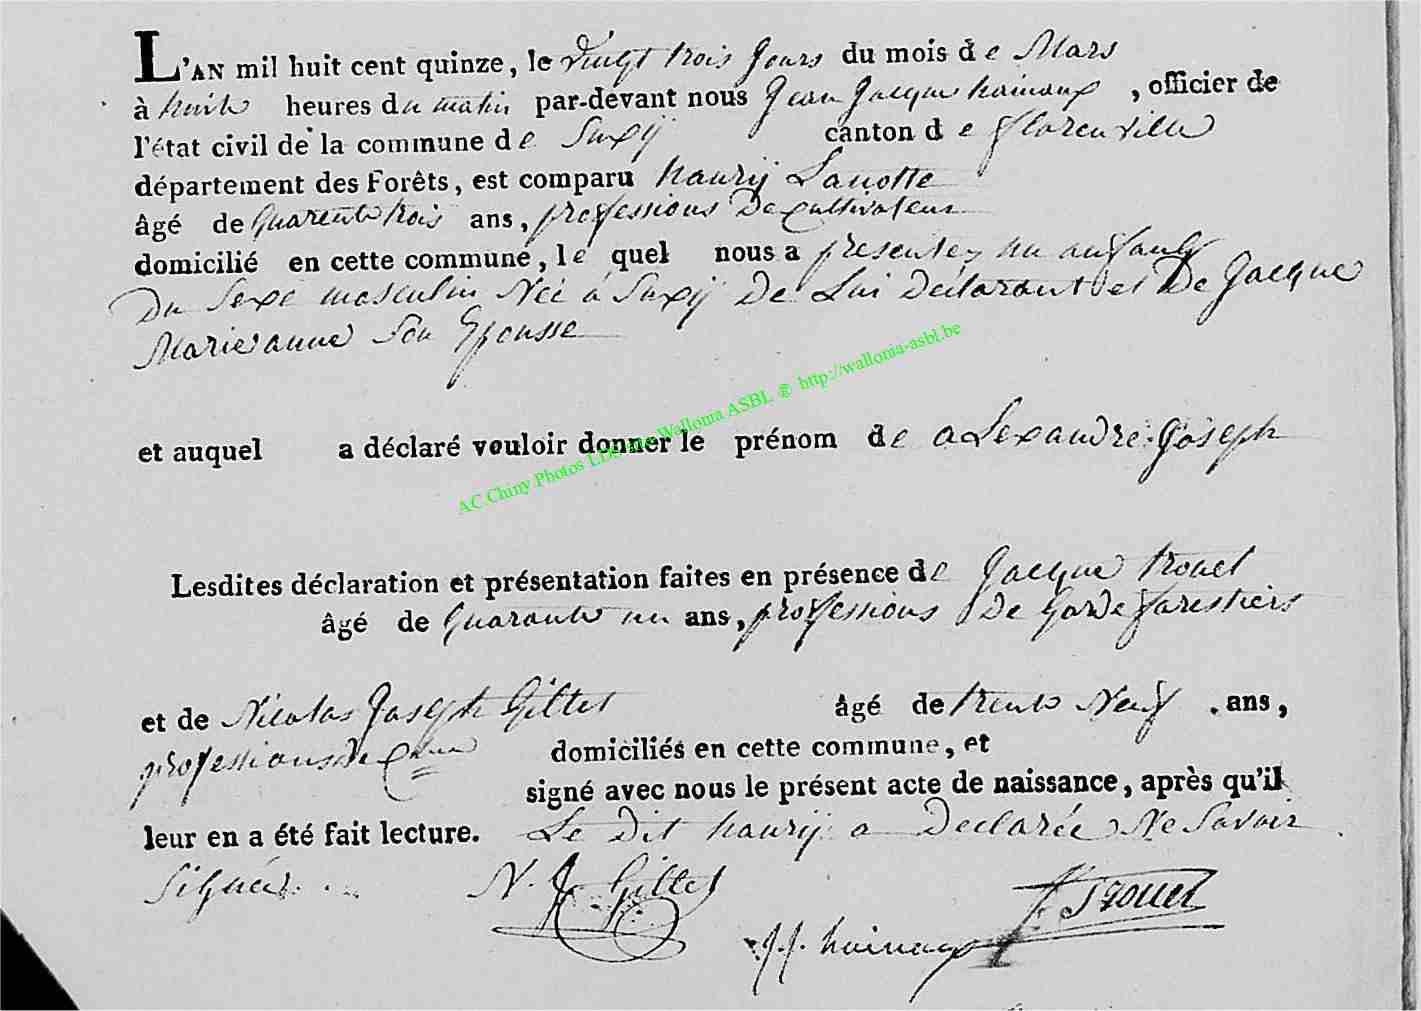 L'AN mil huit cent quinze, le vingt trois Jours du mois de Mars
à huit heures du matin par-devant nous Jean Jacque hainaux, officier de
l'état civil de la commune de Suxÿ canton de florenville
département des Forêts, est comparu haurij Lanotte
âgé de Quarente trois ans, professions De Cultivateur
domicilié en cette commune, le quel nous a presentez un anfant
Du Sexe masculin Neé a Suxÿ De Lui Déclarant et De Jacque
Marie anne Son Epousse
et auquel a déclaré vouloir donner le prénom de aLexandre Joseph
AC.Chiny.Photos LDG Wallonia ASBL ® http://wallonia-asbl.be
Lesdites déclaration et présentation faites en présence de Jacque trouet
âgé de Quarante un ans, professions De Garde farestiers
et de Nicolas Joseph Gillet âgé de trente Neuf ans,
professions de domiciliés en cette commune, et
signé avec nous le présent acte de naissance, après qu'il
leur en a été fait lecture. Le Dit haurij a Declarée Ne Savoir
Signéer
N. J. Gillet
J. Trouet
J.J. hainaux